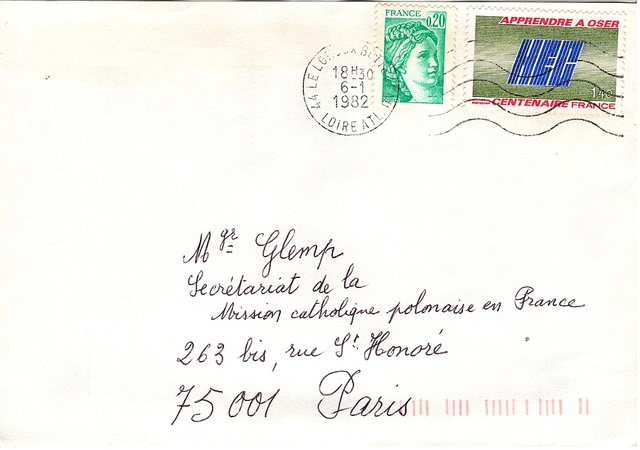 FRANCE
0,20
APPRENDRE A OSER
HEC
1,40
CENTENAIRE FRANCE
44 LE LOROUX BOTTEREAU
18H30
6-1
1982
LOIRE ATL.
Mgr Glemp
Secrétariat de la
Mission catholique polonaise en France
263 bis, rue St. Honoré
75001 Paris